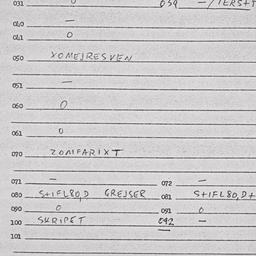 031 0 039 - / TERST
040 -
041 0
050 XOMEJRESVEN
051 -
060 0
061 0
070 ZOMFARIXT
071 - 072 -
080 S+IFL80,D GREJSER 081 S+IFL80,D+
090 0 091 0
100 SKRIPET 092 -
101